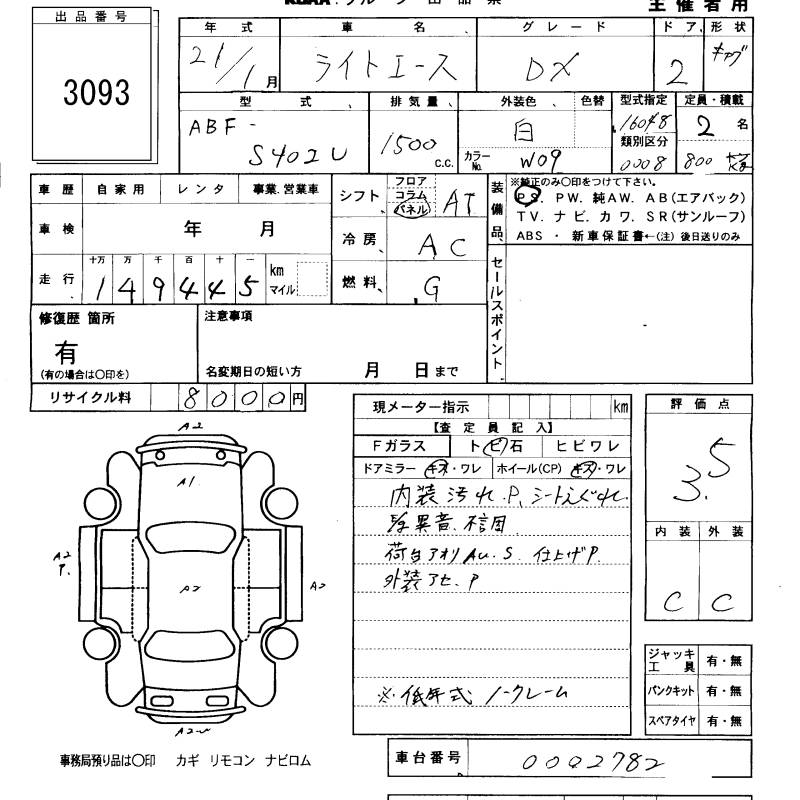 主催者用
出品番号
3093
年式 車名 グレード ドア 形状
21/1月 ライトエース DX 2 キャブ
型式 排気量 外装色 色替 型式指定 定員・積載
ABF-S402U 1500 C.C. 白 カラーNo. W09 16048 類別区分 0008 2名 800
車歴 自家用 レンタ 事業.営業車
車検 年 月
走行 十万 万 千 百 十 一
149445 km マイル
シフト フロア コラム パネル AT
冷房 AC
燃料 G
装備品 ※純正のみ〇印をつけて下さい。
PS. PW. 純AW. AB(エアバック)
TV. ナビ. カワ. SR(サンルーフ)
ABS ・ 新車保証書←(注) 後日送りのみ
セールスポイント
修復歴 箇所
有
(有の場合は〇印を)
注意事項
名変期日の短い方 月 日まで
リサイクル料 8000円
現メーター指示 km
【査定員記入】
Fガラス トビ石 ヒビワレ
ドアミラー キズ・ワレ ホイール(CP) キズ・ワレ
内装汚れ.P.シートえぐれ
異音.
荷台アオリAu.S. 仕上げP.
外装アセ.P
※低年式 ノークレーム
評価点
3.5
内装 外装
C C
A2
A1
A2
P.
A2
A2
A2
ジャッキ工具 有・無
パンクキット 有・無
スペアタイヤ 有・無
事務局預り品は〇印 カギ リモコン ナビロム
車台番号 0002782